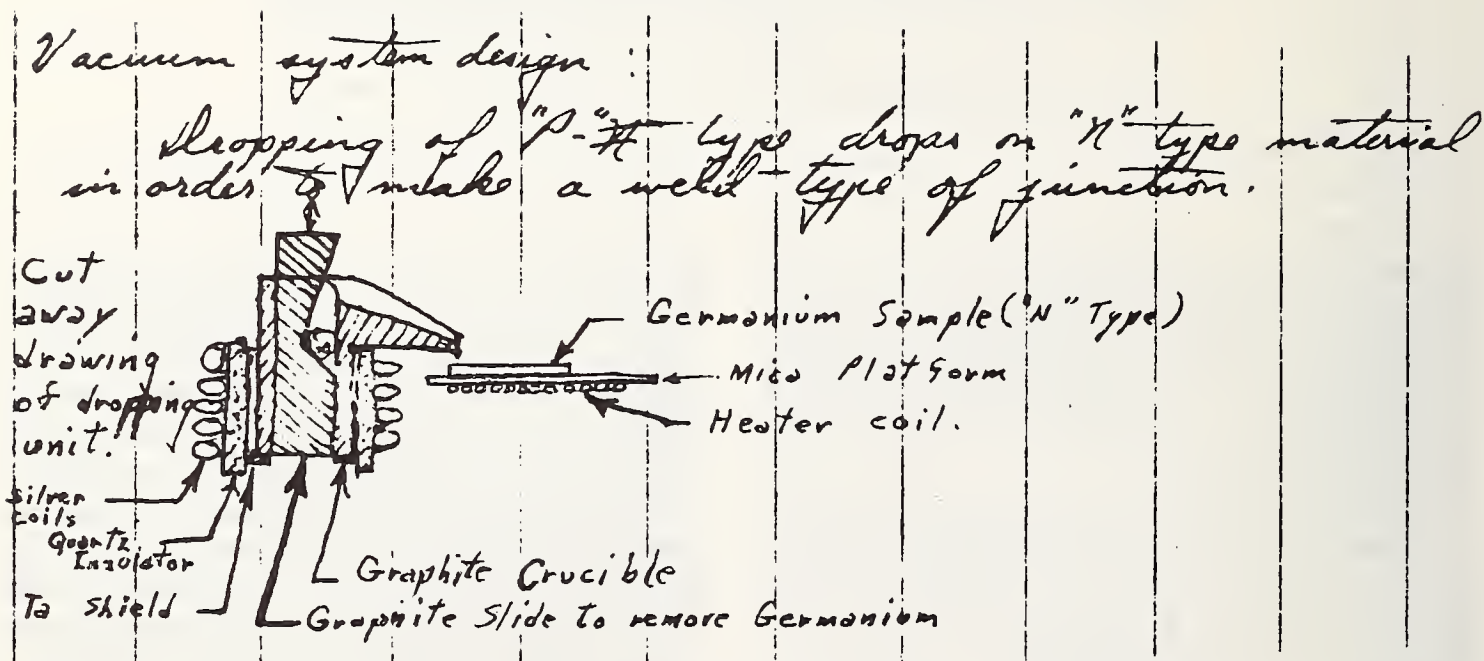 Vacuum system design :
Dropping of "P-" type drops on "N" type material
in order to make a weld type of junction.
Cut
away
drawing
of dropping
unit.
Germanium Sample ("N" Type)
Mica Platform
Heater coil.
Silver
coils
Quartz
Insulator
Ta Shield
Graphite Crucible
Graphite Slide to remove Germanium